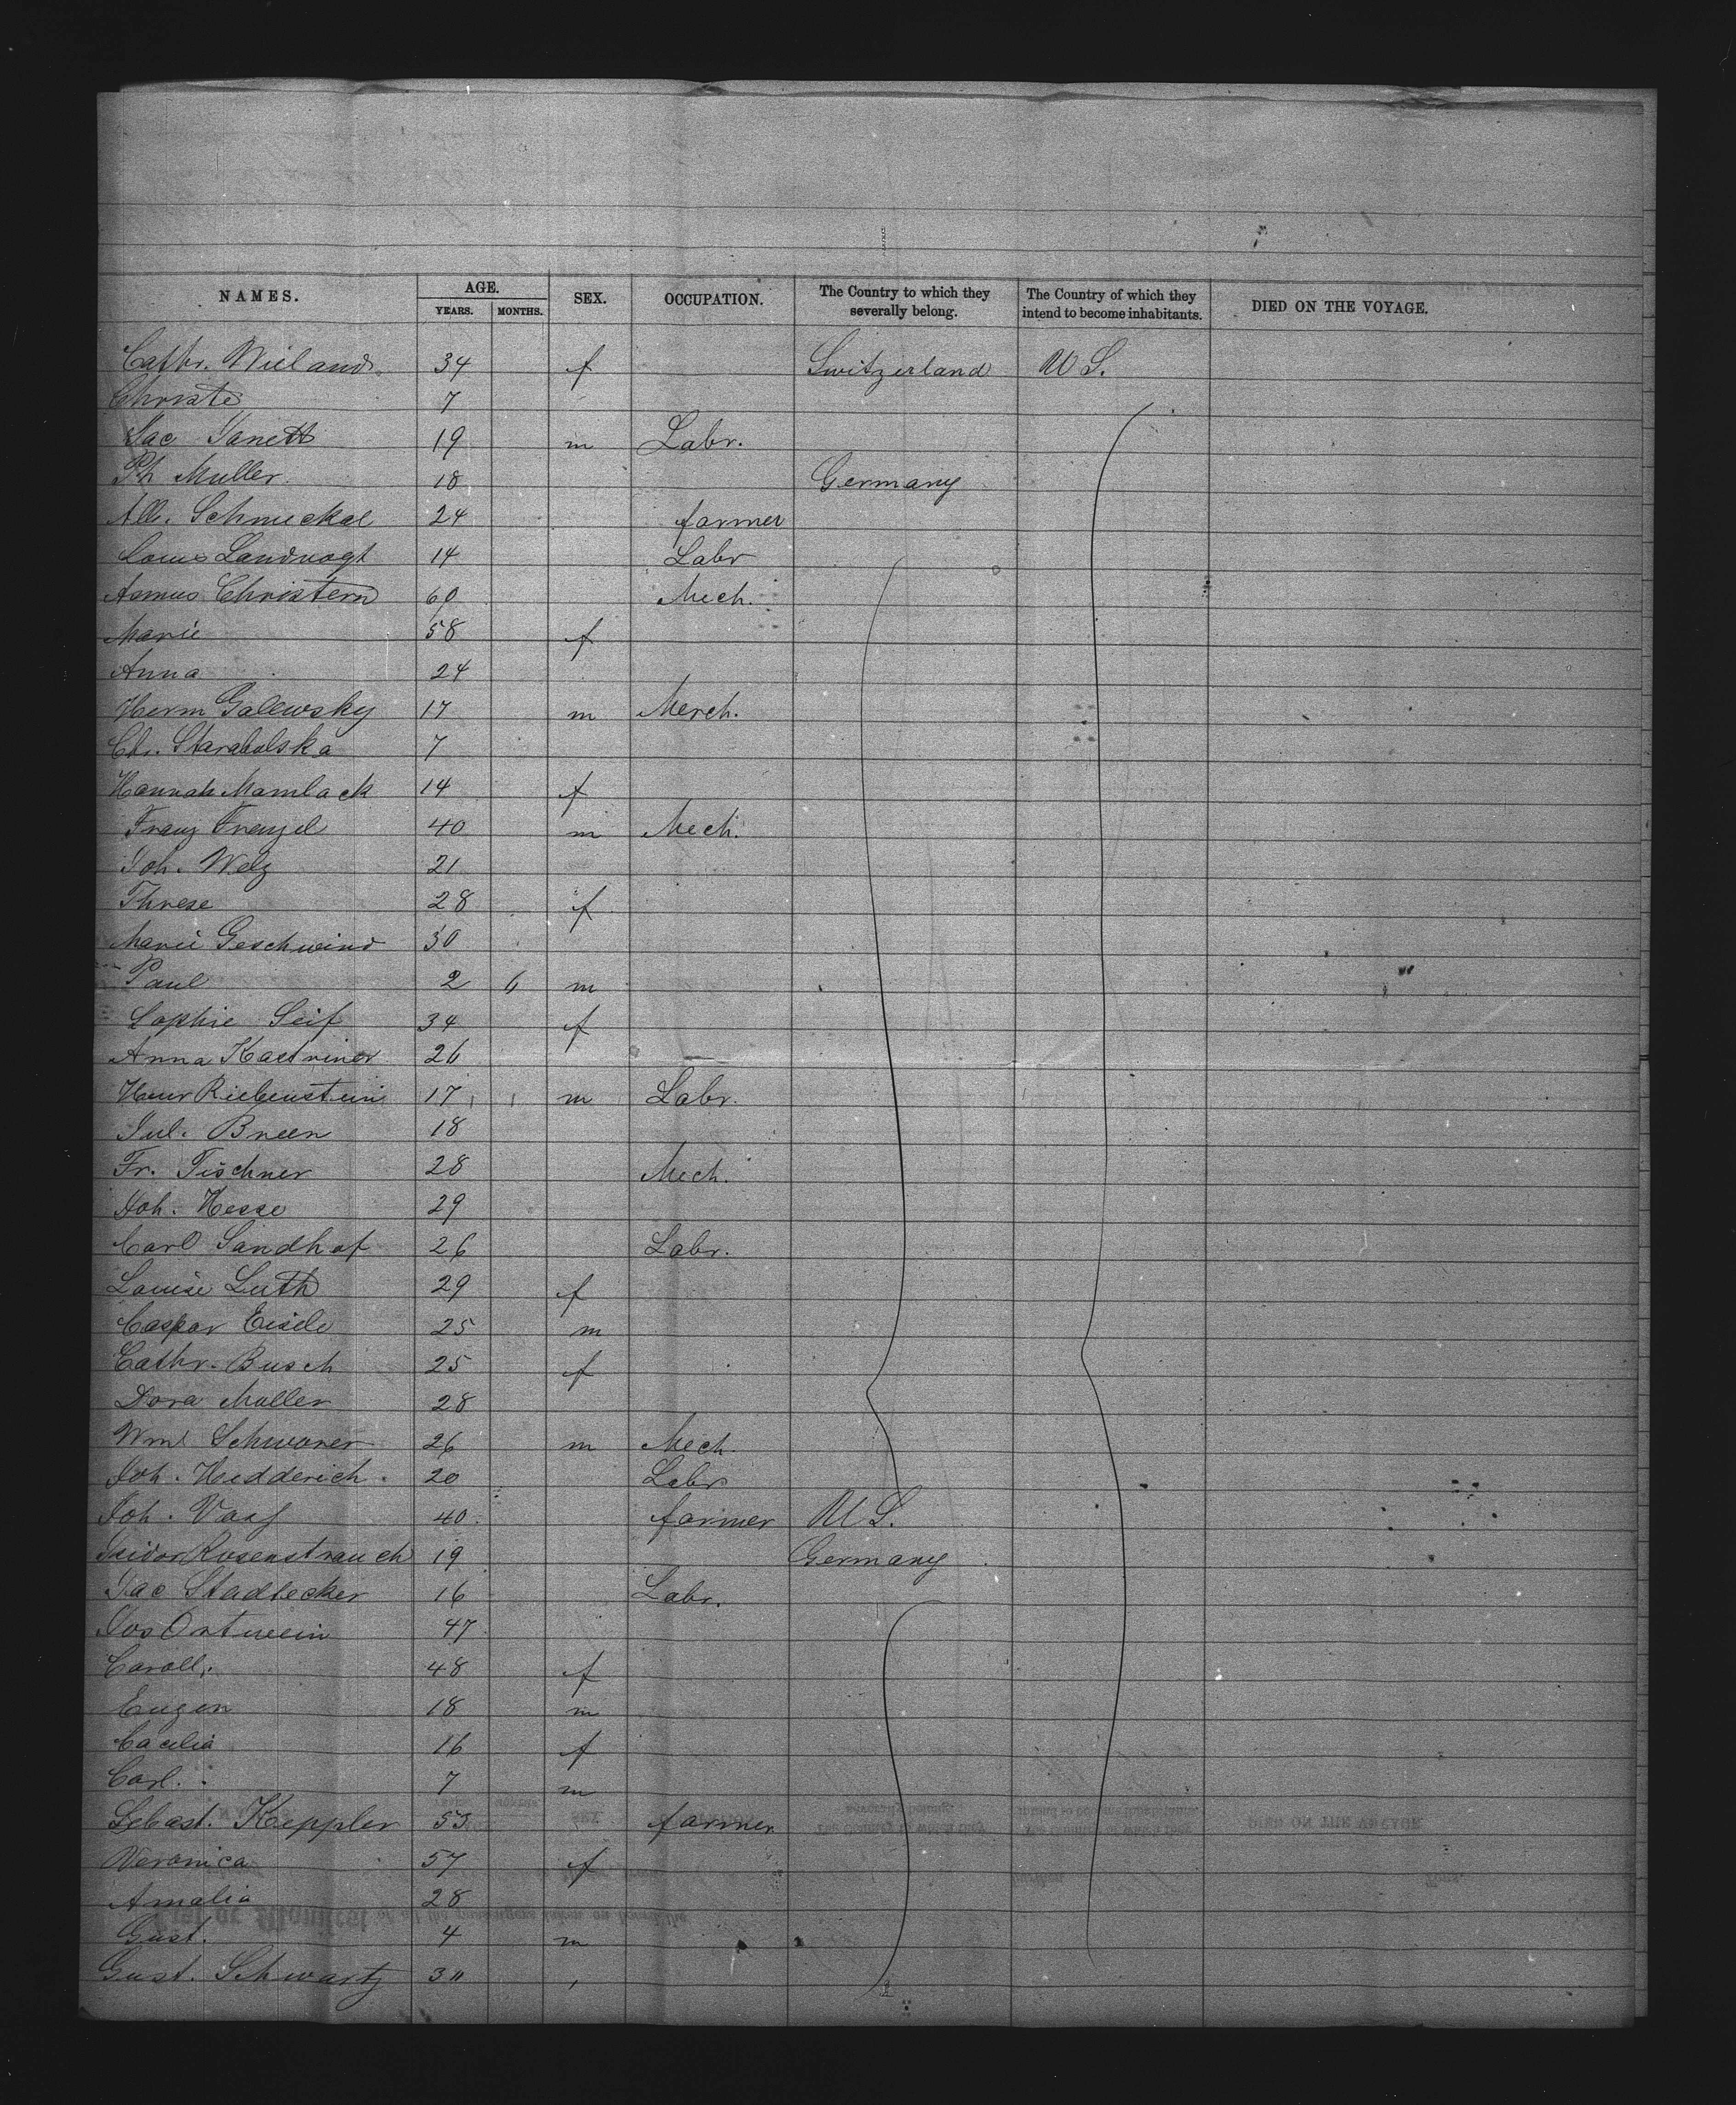 NAMES. AGE. YEARS. MONTHS. SEX. OCCUPATION. The Country to which they severally belong. The Country of which they intend to become inhabitants. DIED ON THE VOYAGE.
Cathr. Wieland 34 f Switzerland U S.
Christe 7
Jac Janett 19 m Labr.
Ph Muller 18 Germany
Alb. Schmeckal 24 farmer
Louis Landvogt 14 Labr
Asmus Christern 60 Mech.
Marie 58 f
Anna 24
Herm Galewsky 17 m Merch.
Chr. Starabolska 7
Hannah Mamlack 14 f
Franz Frenzel 40 m Mech.
Joh. Welz 21
Threse 28 f
Marie Geschwind 30
Paul 2 6 m
Sophie Seif 34 f
Anna Kastriner 26
Henr Riebenstein 17 m Labr.
Jul. Breen 18
Fr. Tischner 28 Mech.
Joh. Hesse 29
Carl Sandhof 26 Labr.
Louise Luth 29 f
Caspar Eisele 25 m
Cathr. Busch 25 f
Dora Muller 28
Wm Schwarer 26 m Mech.
Joh. Hedderich. 20 Labr
Joh. Vaas 40 farmer U S.
Isidor Rosenstrauch 19 Germany
Jac Stadlecker 16 Labr.
Jos Ortwein 47
Caroll. 48 f
Eugen 18 m
Cacilia 16 f
Carl. 7 m
Sebast. Kaeppler 53 farmer
Veronica 57 f
Amalia 28
Gust. 4 m
Gust. Schwartz 30